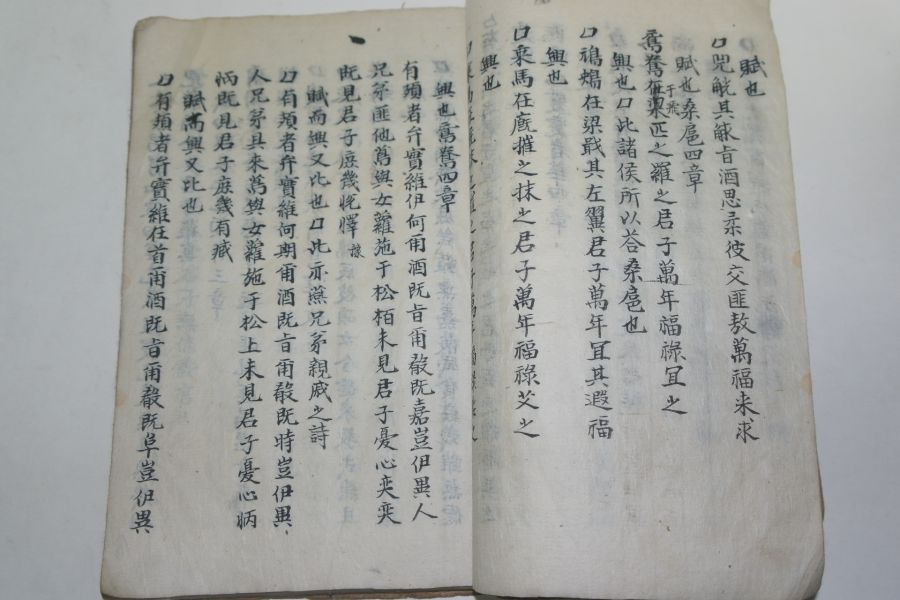 賦也
口兕觥其觩旨酒思柔彼交匪敖萬福来求
賦也桑扈四章
鴦在梁于飛之羅之君子萬年福祿冝之
興也口此諸侯所以荅桑扈也
在梁戢其左翼君子萬年冝其遐福
興也
口乗馬在廐摧之抹之君子萬年福祿艾之
興也
興也鴛鴦四章
有頍者弁實維伊何爾酒既旨爾殽既嘉豈伊異人
兄弟匪他蔦與女蘿施于松栢未見君子憂心奕奕
既見君子庶幾恱懌
賦而興又比也口此亦燕兄弟親戚之詩
口有頍者弁實維何期爾酒既旨爾殽既時豈伊異
人兄弟具来蔦與女蘿施于松上未見君子憂心怲
怲既見君子庶幾有臧
賦而興又比也
口有頍者弁實維在首爾酒既旨爾殽既阜豈伊異